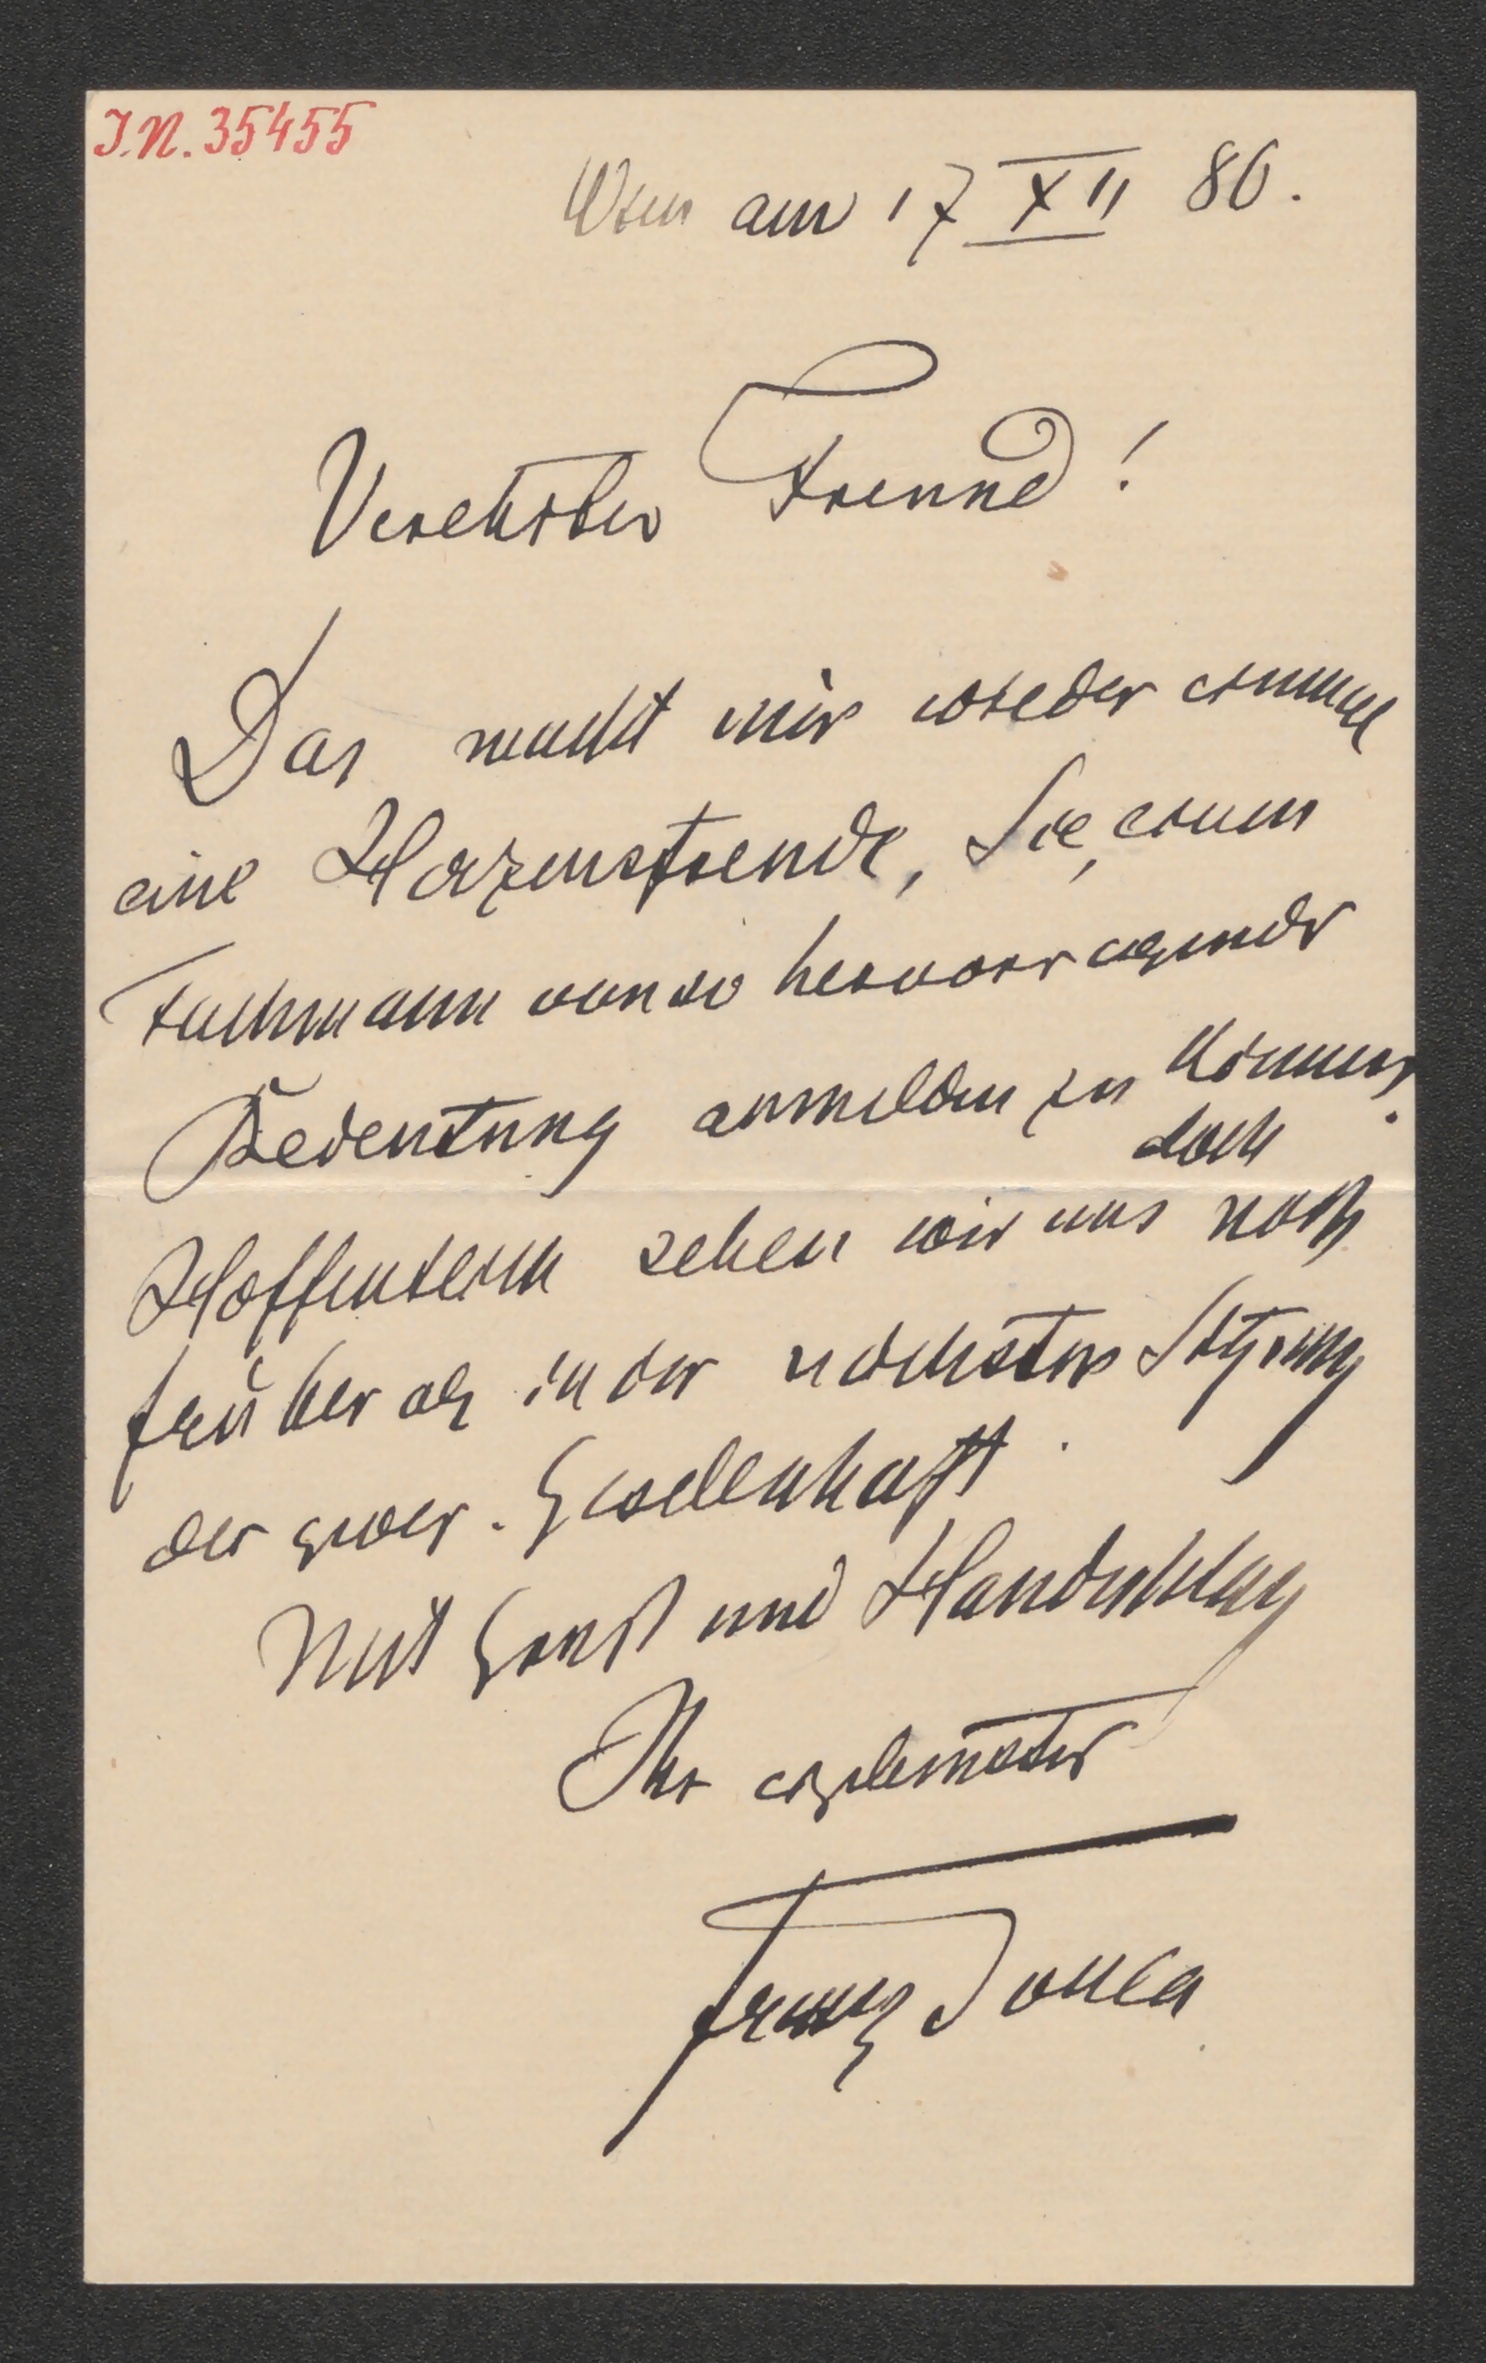 I.N. 35455
Wien am 17 XII 86.
Verehrter Freund!
Das macht mir wieder einmal
eine Herzensfreude, Sie, einen
Fachmann von so hervorragender
Bedeutung anmelden zu können.
Hoffentlich sehen wir uns doch noch
früher als in der nächsten Sitzung
der geogr. Gesellschaft.
Mit Gruß und Handschlag
Ihr ergebenster
Franz Toula